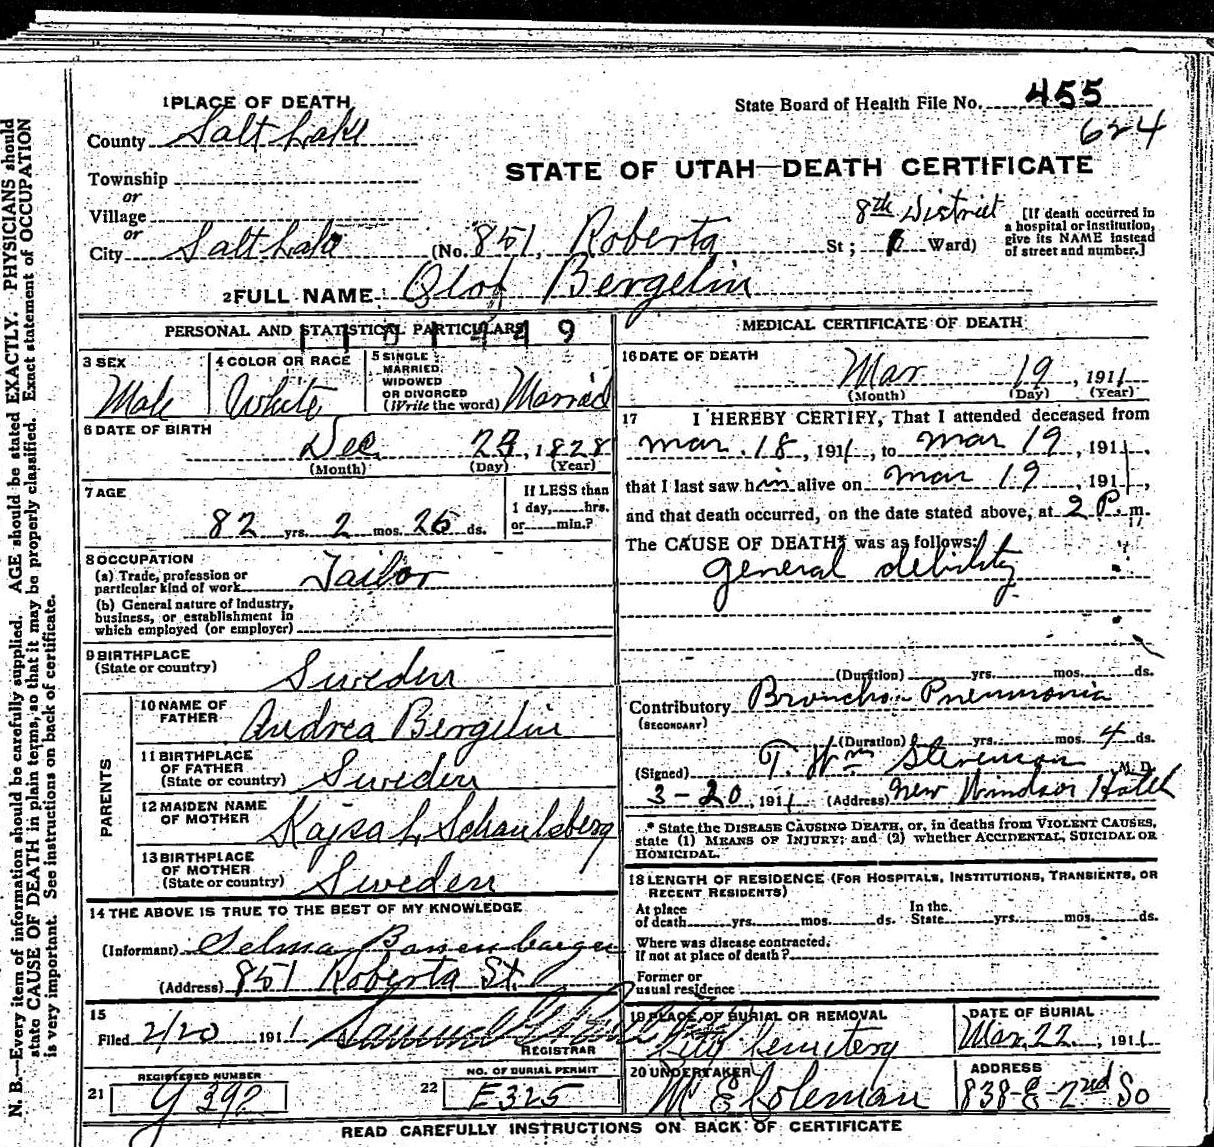 1 PLACE OF DEATH
State Board of Health File No. 455
624
County Salt Lake
STATE OF UTAH—DEATH CERTIFICATE
Township
or
Village
or
City Salt Lake (No. 851, Roberta St; Ward)
8th District
[If death occurred in a hospital or institution, give its NAME instead of street and number.]
2 FULL NAME Olof Bergelin
PERSONAL AND STATISTICAL PARTICULARS
3 SEX
Male
4 COLOR OR RACE
White
5 SINGLE MARRIED, WIDOWED OR DIVORCED (Write the word)
Married
6 DATE OF BIRTH
Dec 23, 1828
(Month) (Day) (Year)
7 AGE
82 yrs. 2 mos. 26 ds.
If LESS than 1 day,......hrs. or......min.?
8 OCCUPATION
(a) Trade, profession or particular kind of work Tailor
(b) General nature of Industry, business, or establishment in which employed (or employer)
9 BIRTHPLACE
(State or country) Sweden
PARENTS
10 NAME OF FATHER Andrea Bergelin
11 BIRTHPLACE OF FATHER (State or country) Sweden
12 MAIDEN NAME OF MOTHER Kajsa L Schaulsberg
13 BIRTHPLACE OF MOTHER (State or country) Sweden
14 THE ABOVE IS TRUE TO THE BEST OF MY KNOWLEDGE
(Informant) Selma
(Address) 851 Roberta St.
15
Filed 2/20 1911 Samuel
REGISTRAR
REGISTERED NUMBER
21 392
NO. OF BURIAL PERMIT
22 E325
MEDICAL CERTIFICATE OF DEATH
16 DATE OF DEATH
Mar 19, 1911
(Month) (Day) (Year)
17 I HEREBY CERTIFY, That I attended deceased from
Mar. 18, 1911, to Mar 19, 1911,
that I last saw him alive on Mar 19, 1911,
and that death occurred, on the date stated above, at 2 P. m.
The CAUSE OF DEATH* was as follows:
general debility
(Duration) yrs. mos. ds.
Contributory Broncho-Pneumonia
(SECONDARY)
(Duration) yrs. mos. 4 ds.
(Signed) T. Wm Stevenson M. D.
3-20, 1911 (Address) New Windsor Hotel
* State the DISEASE CAUSING DEATH, or, in deaths from VIOLENT CAUSES, state (1) MEANS OF INJURY; and (2) whether ACCIDENTAL, SUICIDAL OR HOMICIDAL.
18 LENGTH OF RESIDENCE (FOR HOSPITALS, INSTITUTIONS, TRANSIENTS, OR RECENT RESIDENTS)
At place of death yrs. mos. ds. In the State yrs. mos. ds.
Where was disease contracted, if not at place of death?
Former or usual residence
19 PLACE OF BURIAL OR REMOVAL
City Cemetery
DATE OF BURIAL
Mar. 22, 1911
20 UNDERTAKER
Coleman
ADDRESS
838-E-2nd So
READ CAREFULLY INSTRUCTIONS ON BACK OF CERTIFICATE
N. B.—Every item of information should be carefully supplied. AGE should be stated EXACTLY. PHYSICIANS should
state CAUSE OF DEATH in plain terms, so that it may be properly classified. Exact statement of OCCUPATION
is very important. See instructions on back of certificate.